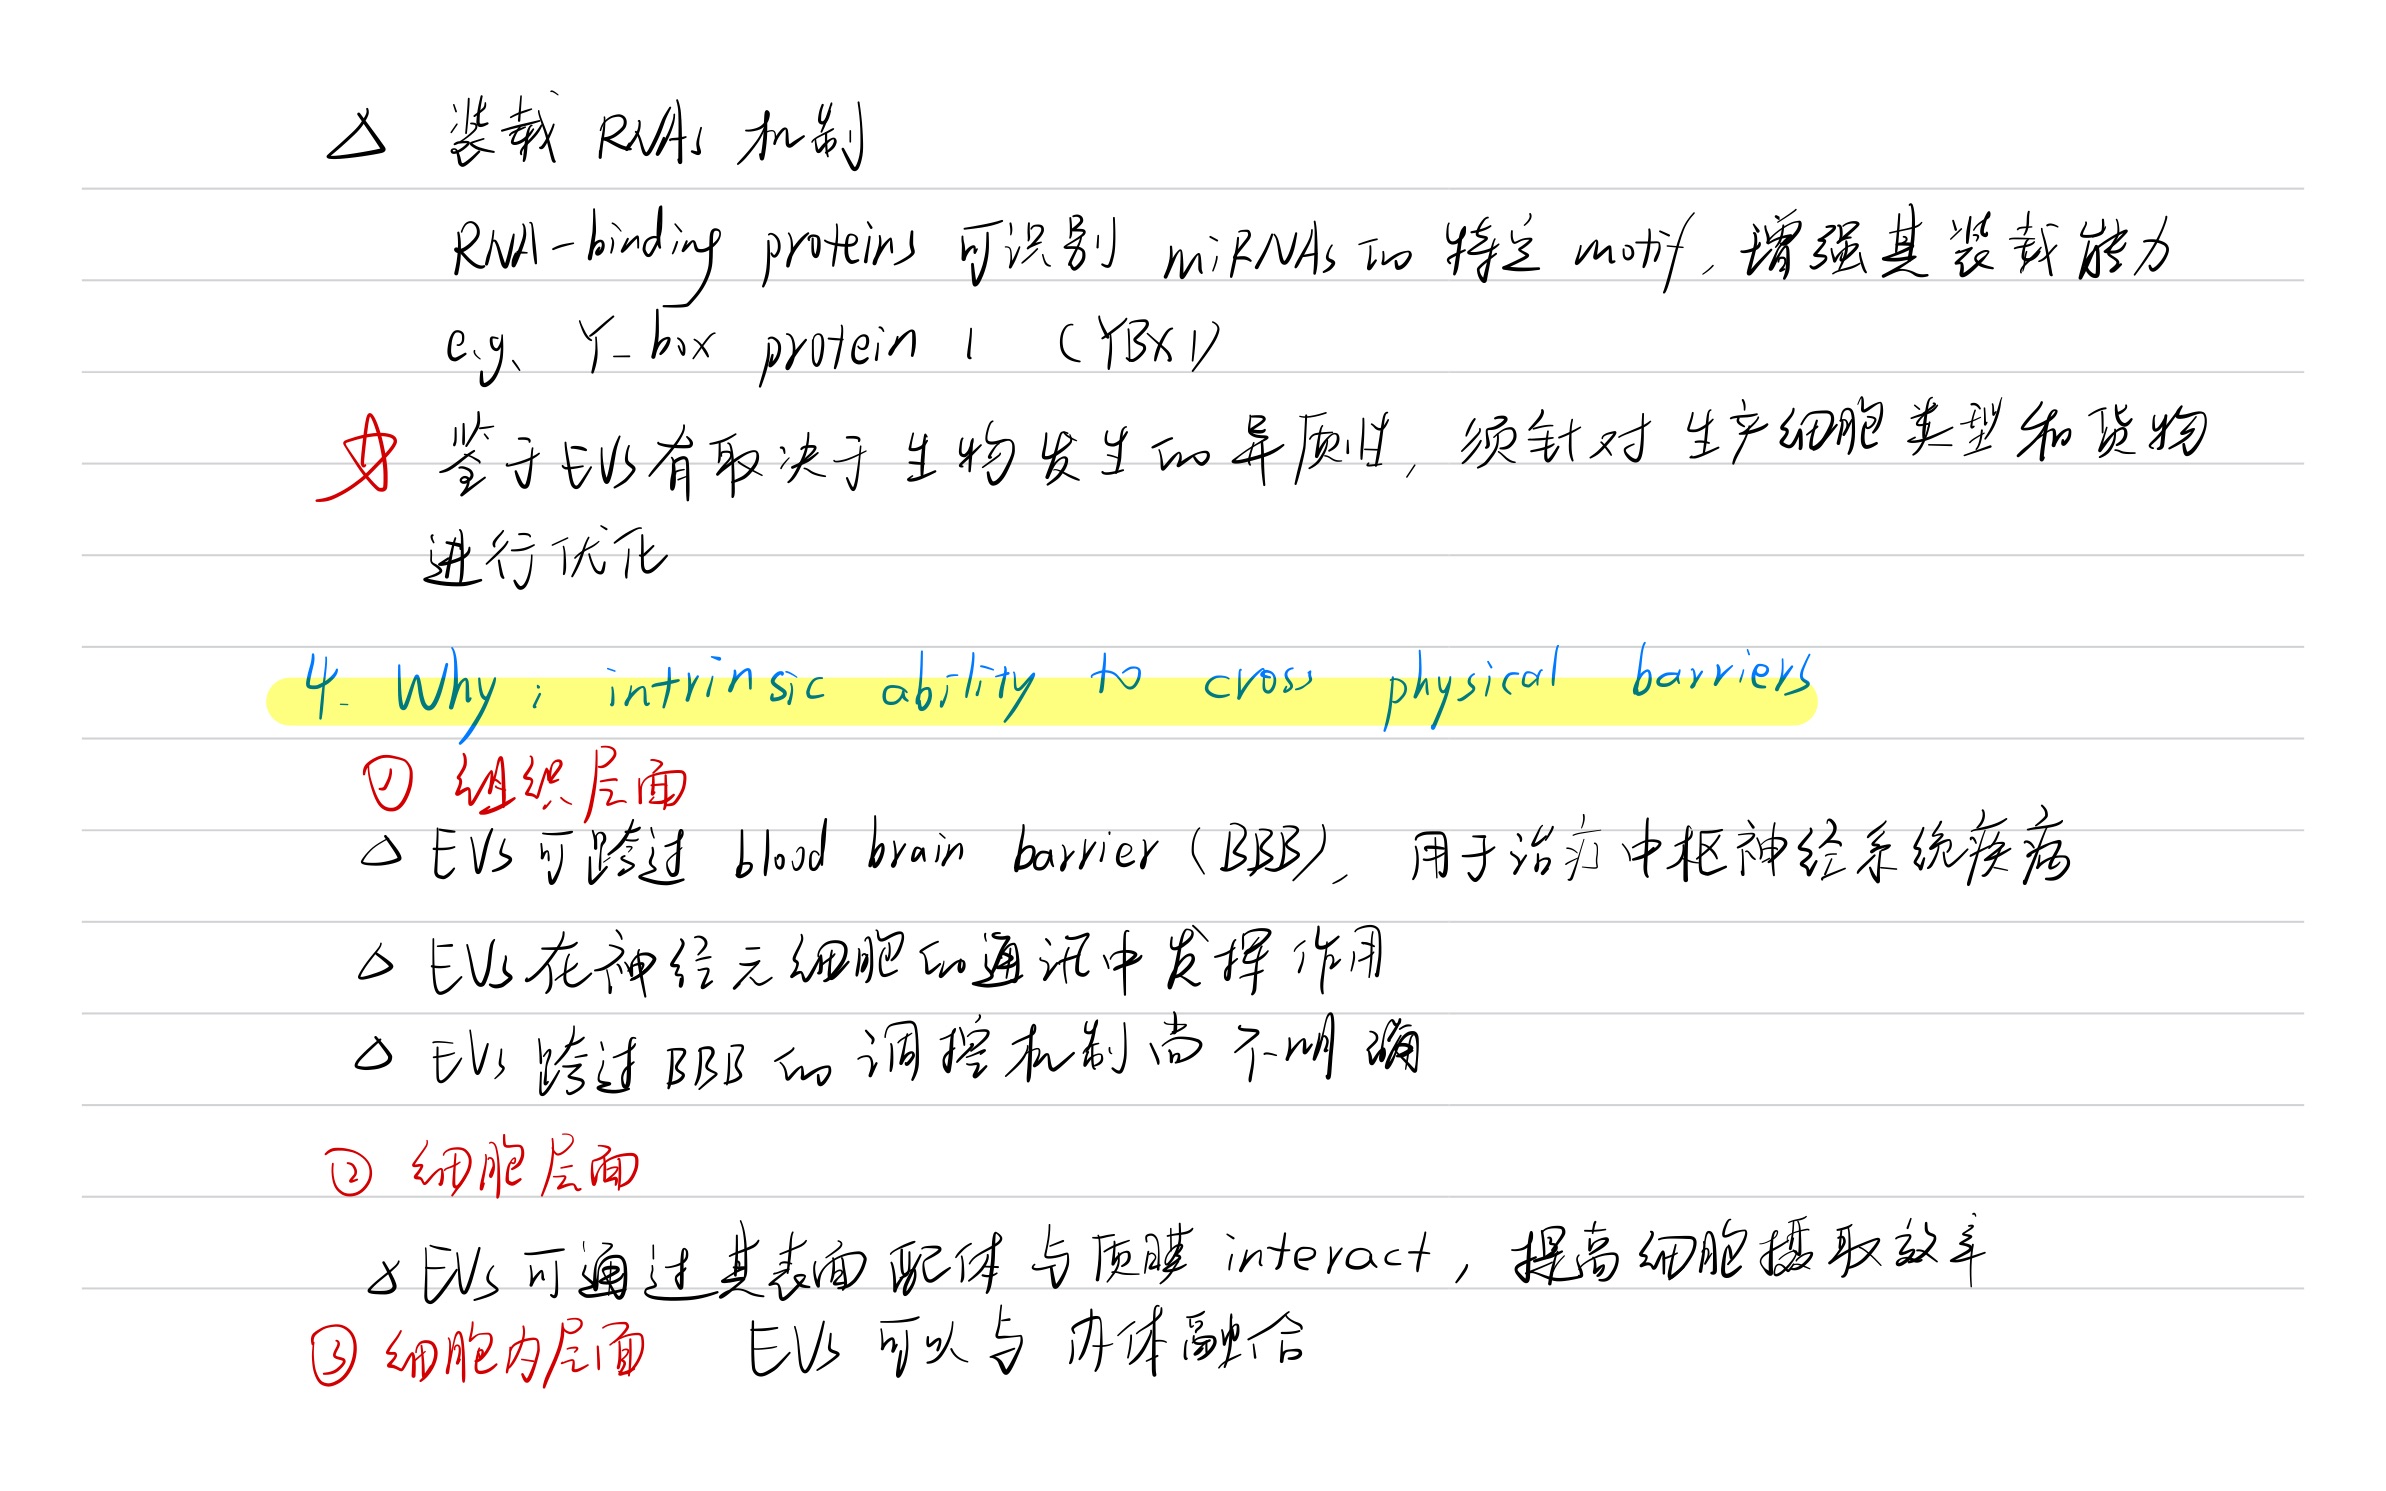 △ 装载 RNAs 机制
RNA-binding proteins 可识别 miRNAs 的 特定 motif, 增强其装载能力
e.g. Y-box protein 1 (YBX1)
☆ 鉴于EVs有取决于生物发生的异质性, 须针对生产细胞类型和货物
进行优化
4. Why: intrinsic ability to cross physical barriers
① 组织层面
△ EVs可跨过 blood brain barrier (BBB), 用于治疗中枢神经系统疾病
△ EVs在神经元细胞的通讯中发挥作用
△ EVs 跨过 BBB 的调控机制尚不明确
② 细胞层面
△ EVs 可通过其表面配体与质膜 interact, 提高细胞摄取效率
③ 细胞内层面 EVs 可以与内体融合